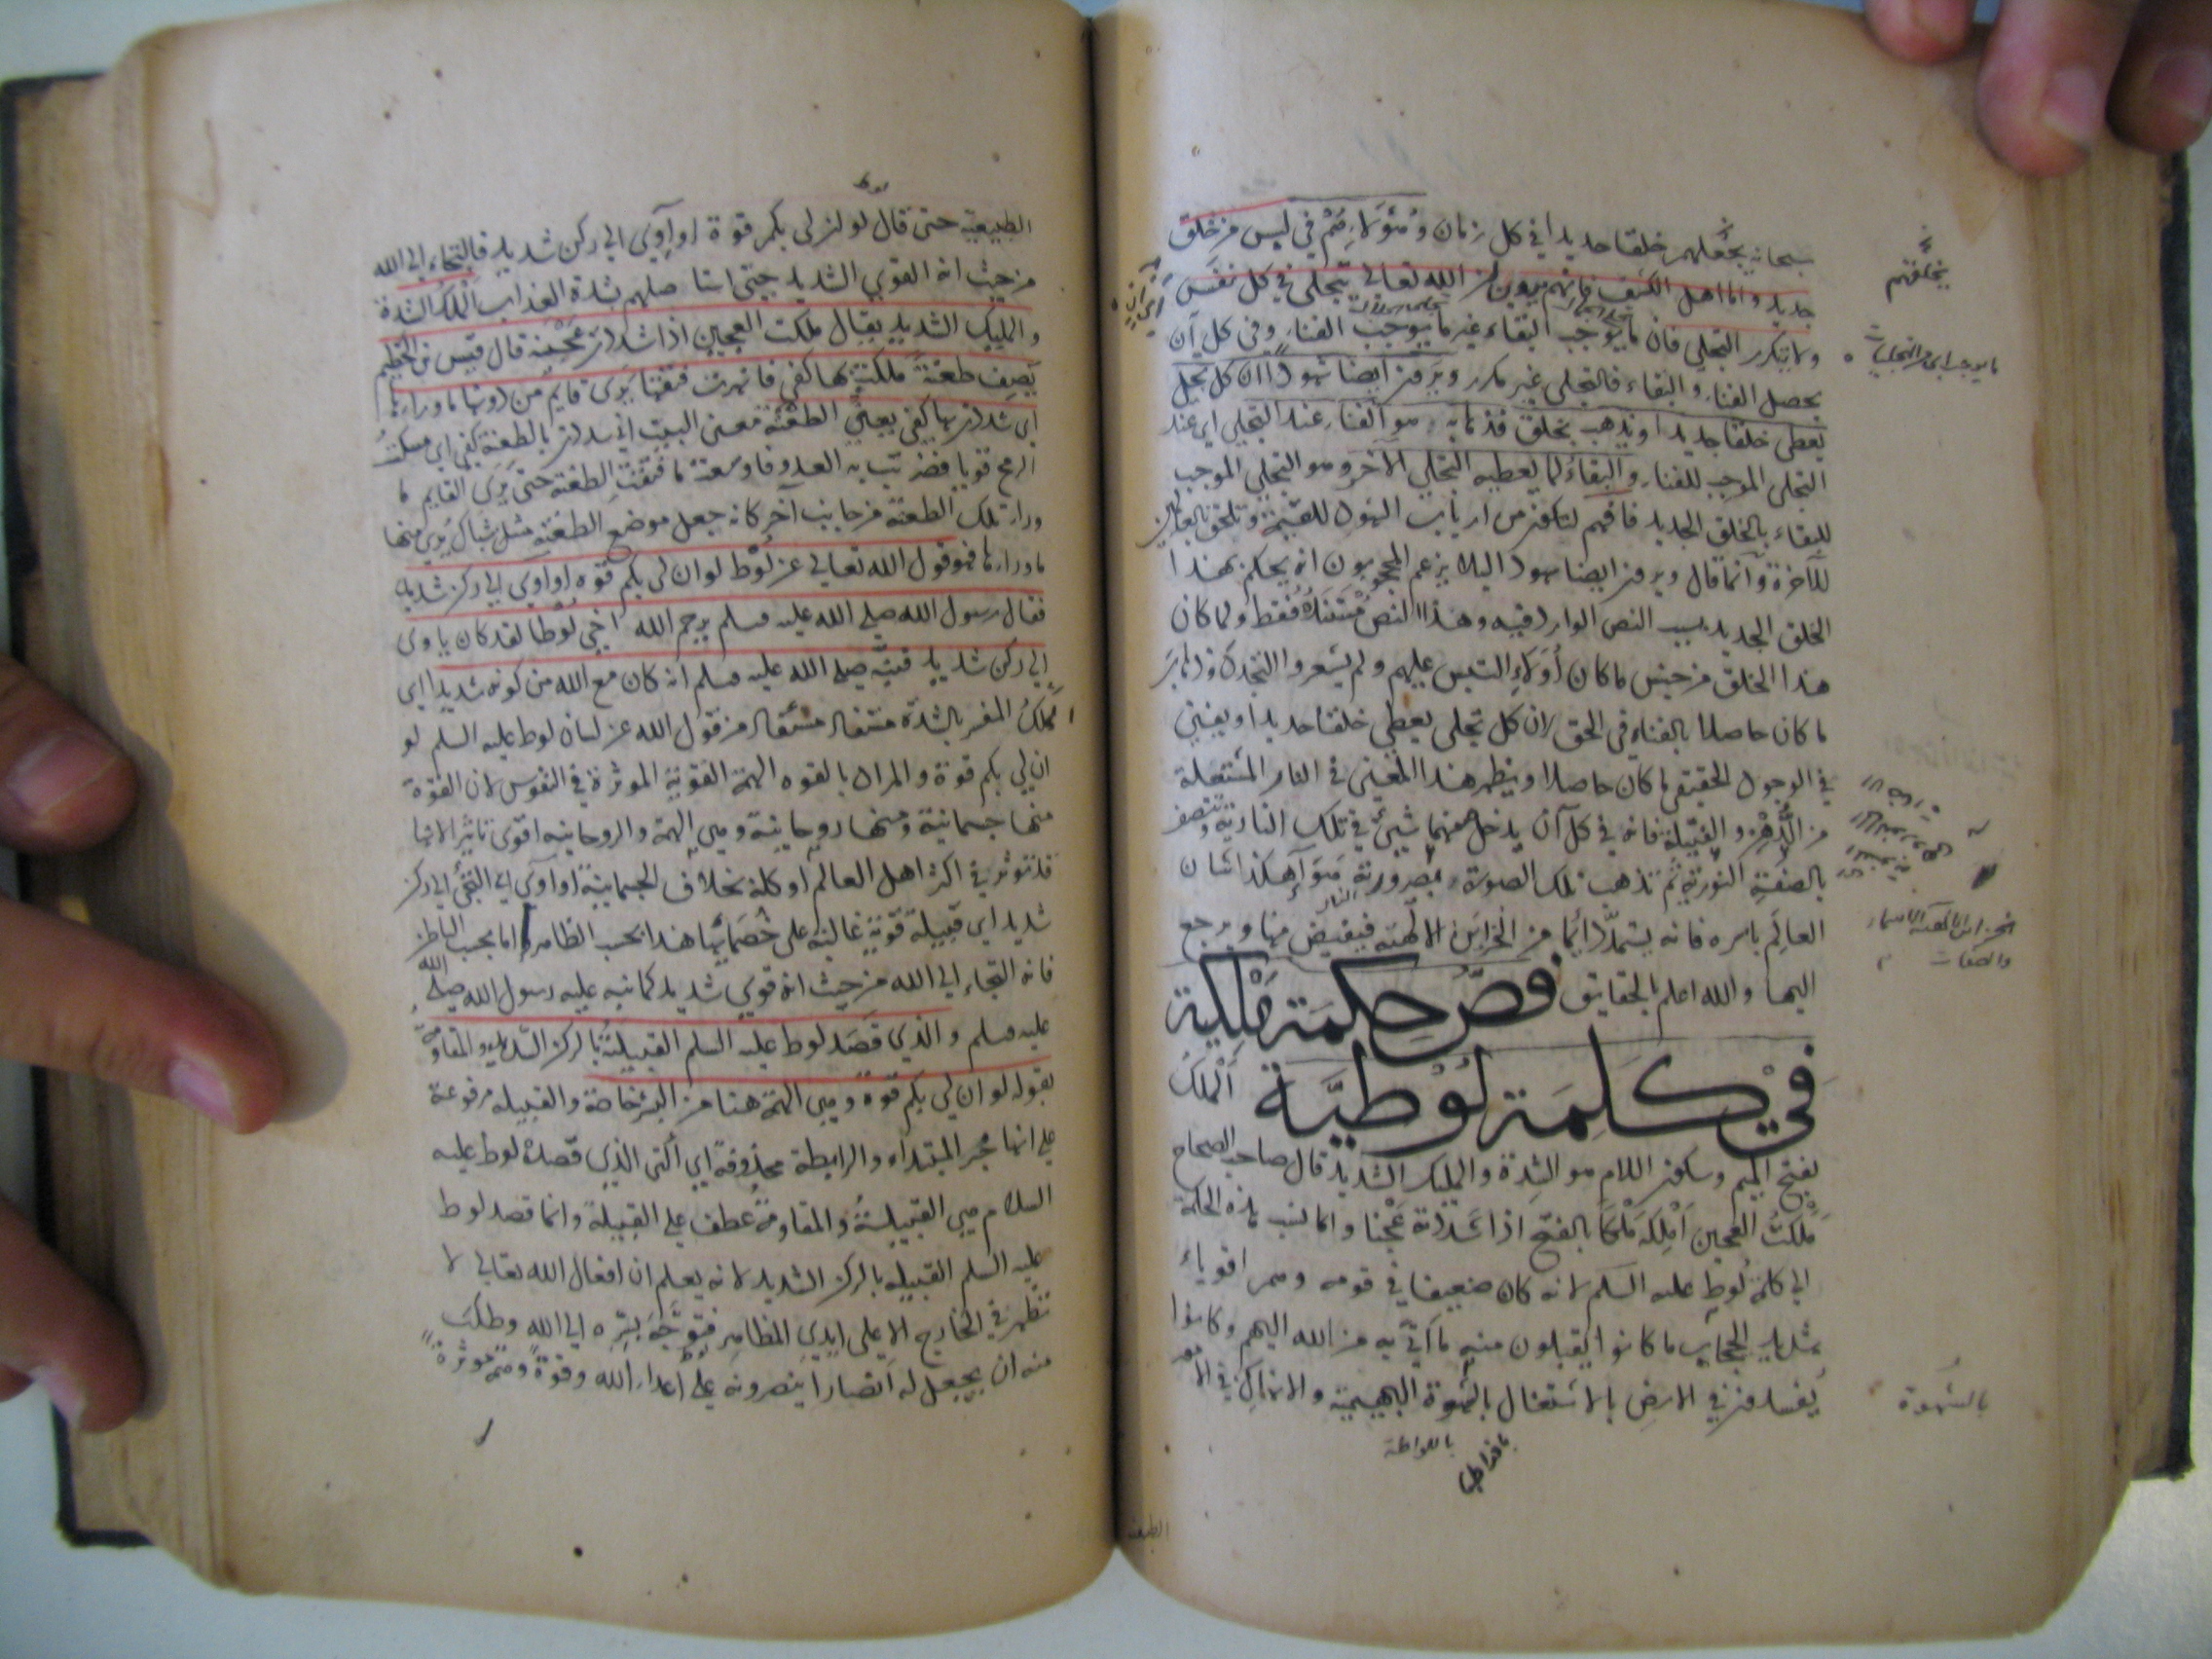 سبحانه يجعلهم خلقا جديدا في كل زمان وهؤلاء هم في لبس من خلق
جديد واما اهل الكشف فانهم يرون ان الله تعالى يتجلى في كل نفس
ولا يتكرر التجلي فان ما يوجب البقاء غير ما يوجب الفناء وفي كل آن
يحصل الفناء والبقاء فالتجلي غير مكرر ويرون ايضا شهودا ان كل تجل
يعطي خلقا جديدا ويذهب بخلق فذهابه هو الفناء عند التجلي اي عند
التجلي الموجب للفناء والبقاء لما يعطيه التجلي الآخر وهو التجلي الموجب
للبقاء بالخلق الجديد فافهم لتكون من ارباب الشهود للقيمة وتلحق بالفائزين
للآخرة وانما قال ويرون ايضا شهودا لئلا يزعم المحجوبون انه يحكم بهذا
الخلق الجديد بسبب النص الوارد فيه وهذا النص مستنده فقط ولما كان
هذا الخلق من جنس ما كان اولا التبس عليهم ولم يشعروا التجدد وذهاب
ما كان حاصلا بالفناء في الحق لان كل تجلي يعطي خلقا جديدا ويفني
في الوجود الحقيقي ما كان حاصلا ويظهر هذا المعنى في النار المشتعلة
من الدهن والفتيلة فانه في كل آن يدخل منهما شيئ في تلك النارية ويتصف
بالصفة النورية ثم تذهب تلك الصورة بصيرورته هواء هكذا شان
العالم باسره فانه يستمد دائما من الخزاين الالهية فيفيض منها ويرجع
اليها والله اعلم بالحقايق فص حكمة ملكية
في كلمة لوطية الملك
بفتح الميم وسكون اللام هو الشدة والمليك الشديد قال صاحب الصحاح
ملكت العجين املكه ملكا بالفتح اذا شددت عجنه وانما نسب هذه الحكمة
الى كلمة لوط عليه السلم لانه كان ضعيفا في قومه وهم اقوياء
شديد الحجاب ما كانوا يقبلون منه ما أتى به من الله اليهم وكانوا
يفسدون في الارض بالاشتغال بالشهوة البهيمية والانهماك في الامور
بالشهوة
باللواطة
الطبيعية
الطبيعية حتى قال لو ان لي بكم قوة او آوي الى ركن شديد فالتجاء الى الله
من حيث انه القوي الشديد حتى استاصلهم بشدة العذاب الملك الشدة
والمليك الشديد يقال ملكت العجين اذا شددت عجينه قال قيس بن الخطيم
يصف طعنة ملكت بها كفي فانهرت فتقها يرى قايم من دونها ما وراءها
اي شددت بها كفي يعني الطعنة معنى البيت اني شددت بالطعنة كفي اي مسكت
الرمح قويا فضربت به العدو فاوسعت ما فتقت الطعنة حتى يرى القايم ما
وراء تلك الطعنة من جانب آخر كانه جعل موضع الطعنة مثل شباك يرى منها
ما وراءها فهو قول الله تعالى عن لوط لو ان لي بكم قوة او آوي الى ركن شديد
فقال رسول الله صلى الله عليه وسلم يرحم الله اخي لوطا لقد كان ياوى
الى ركن شديد فنبه صلى الله عليه وسلم انه كان مع الله من كونه شديدا اي
الملك المفسر بالشدة مستفاد من قول الله عن لسان لوط عليه السلم لو
ان لي بكم قوة والمراد بالقوه الهمة القوية الموثرة في النفوس لان القوة
منها جسمانية ومنها روحانية وهي الهمة والروحانيه اقوى تاثيرا لانها
قد توثر في اكثر اهل العالم او كله بخلاف الجسمانية او آوي الى التجئ الى ركن
شديد اي قبيلة قوية غالبة على خصمائها هذا بحسب الظاهر واما بحسب الباطن
فانه التجاء الى الله من حيث انه قوي شديد كما نبه عليه رسول الله صلى الله
عليه وسلم والذي قصد لوط عليه السلم القبيلة بالركن الشديد والمقاومة
بقوله لو ان لي بكم قوة وهي الهمة هنا من البشر خاصة والقبيله مرفوعة
على انها خبر المبتداء والرابطة محذوفة اي التى الذي قصده لوط عليه
السلام هي القبيلة والمقاومة عطف على القبيلة وانما قصد لوط
عليه السلم القبيله بالركن الشديد لانه يعلم ان افعال الله تعالى لا
تظهر في الخارج الا على ايدي المظاهر فتوجه بسره الى الله وطلب
منه ان يجعل له انصارا ينصرونه على اعداء الله وقوة وهمة موثرة